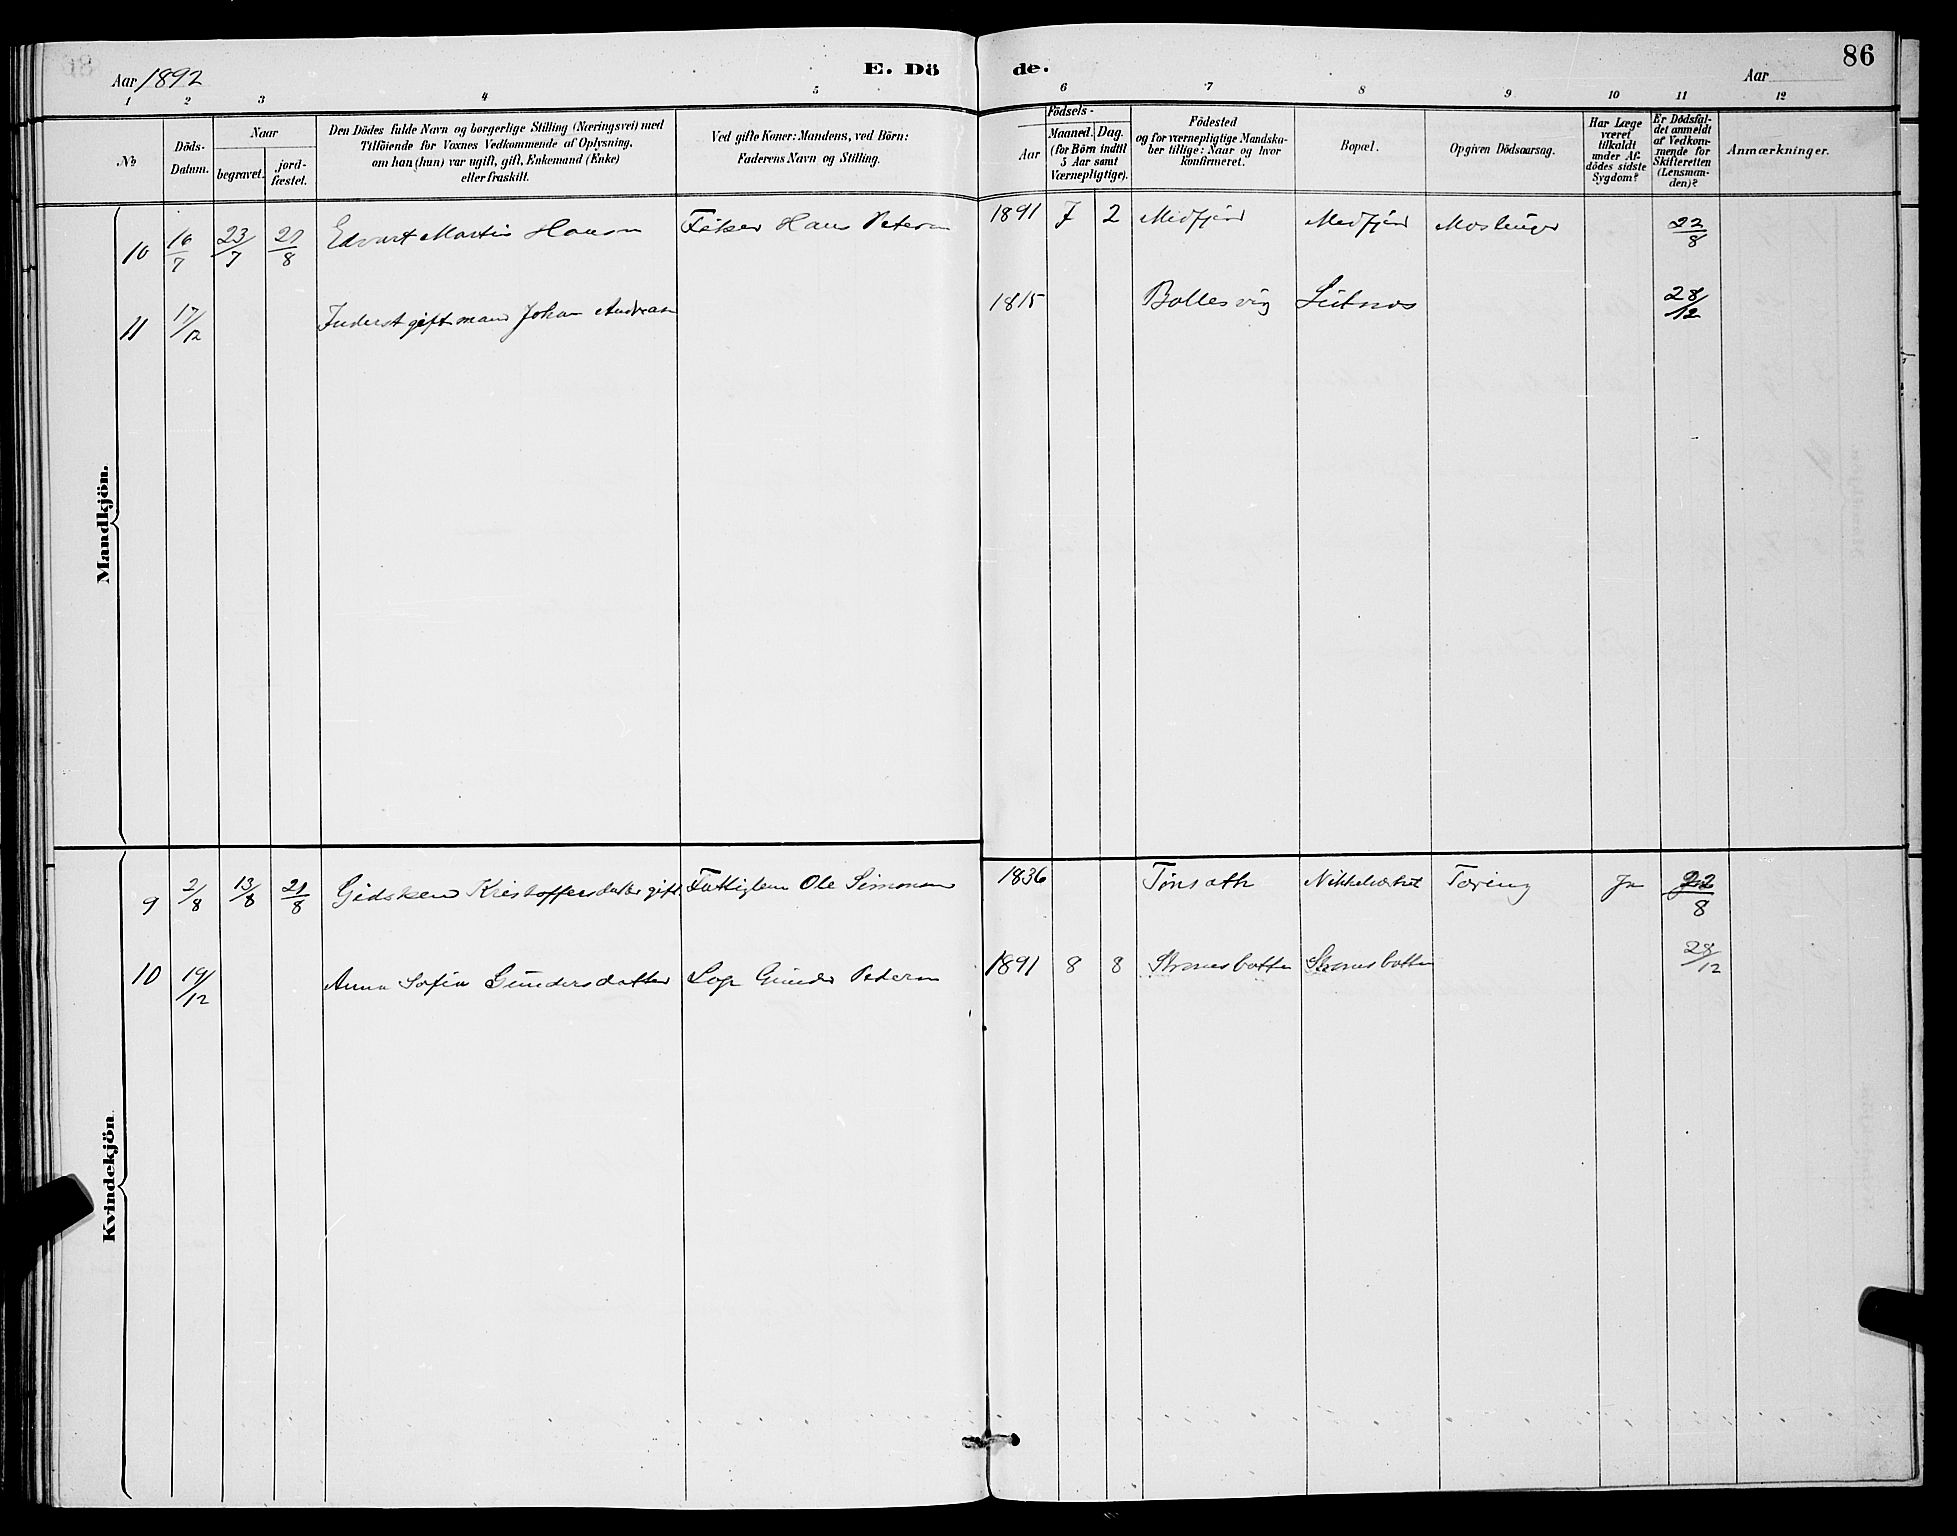 86
Aar 1892
E. Dö de.
Aar
1 2 3 4 5 6 7 8 9 10 11 12
No
Döds-Datum.
Naar
begravet.
jord-fæstet.
Den Dödes fulde Navn og borgerlige Stilling (Næringsvei) med
Tilföiende for Voxnes Vedkommende af Oplysning,
om han (hun) var ugift, gift, Enkemand (Enke)
eller fraskilt.
Ved gifte Koner: Mandens, ved Börn:
Faderens Navn og Stilling.
Födsels-
Aar
Maaned. Dag.
(for Börn indtil
5 Aar samt
Værnepligtige).
Födested
og for værnepligtige Mandska-
ber tillige: Naar og hvor
konfirmeret.
Bopæl.
Opgiven Dödsaarsag.
Har Læge
været
tilkaldt
under Af-
dödes sidste
Sygdom?
Er Dödsfal-
det anmeldt
af Vedkom-
mende for
Skifteretten
(Lensman-
den)?
Anmærkninger.
Mandkjön.
10 16/7 23/7 21/8 Edvart Martin Hansen Fisker Hans Petersen 1891 7 2 Medfjord Medfjord 22/8
11 17/12 Inderst gift mand Johan Andreasen 1815 Ballesvig 28/12
Kvindekjön.
9 2/8 13/8 21/8 Gidsken Kristoffersdatter gift Fattiglem Ole Simonsen 1836 Tönseth Nikkelverket Tæring Ja 22/8
10 19/12 Anna Sofia Gundersdatter Gunder Petersen 1891 8 8 Strømsbotten Strømsbotten 28/12